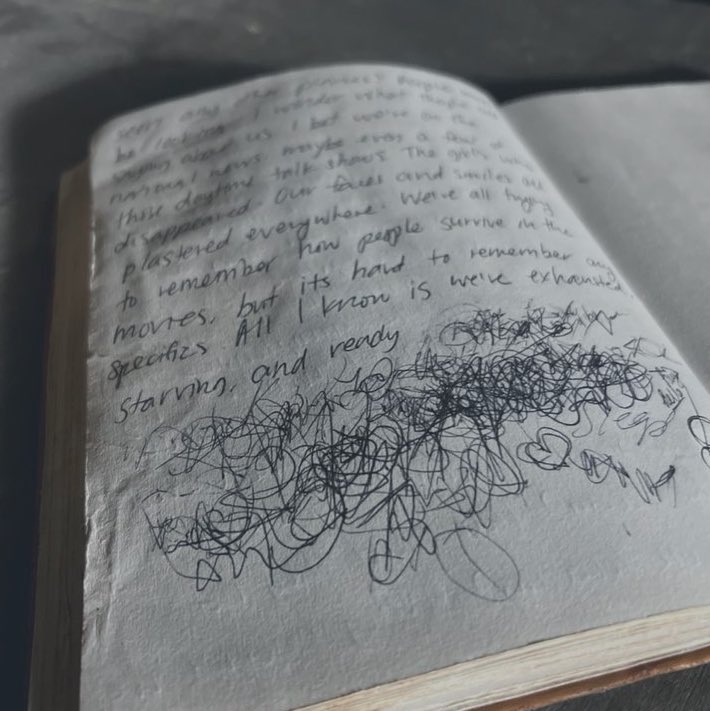 very and the
be looking. I wonder what people are
saying about us. I bet we're on the
national news maybe even a few of
those daytime talk shows. The girls who
disappeared. Our faces and smiles all
plastered everywhere. We've all trying
to remember how people survive in the
movies, but its hard to remember any
specifics All I know is we've exhausted,
starving, and ready